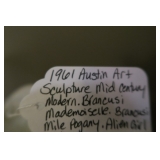 1961 Austin Art
Sculpture Mid Century
Modern. Brancusi
Mademoiselle. Brancusi
Mlle Pogany. Alien Girl